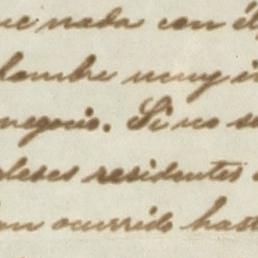 ue nada con él
hombre muy i
negocio. Si no se
leses residentes
on ocurrido hast